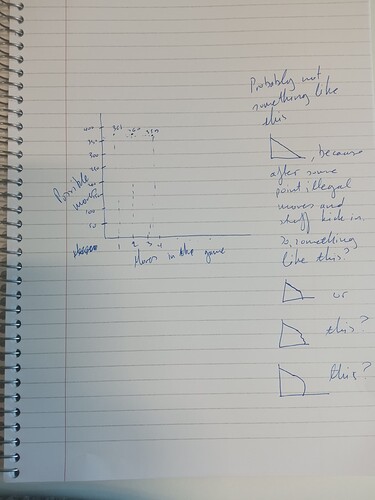 400
361
360
359
350
300
250
200
100
50
Possible
moves
1 2 3 4
Moves in the game
Probably not
something like
this
, because
after some
point illegal
moves and
stuff kick in.
So, something
like this?
or
this?
this?